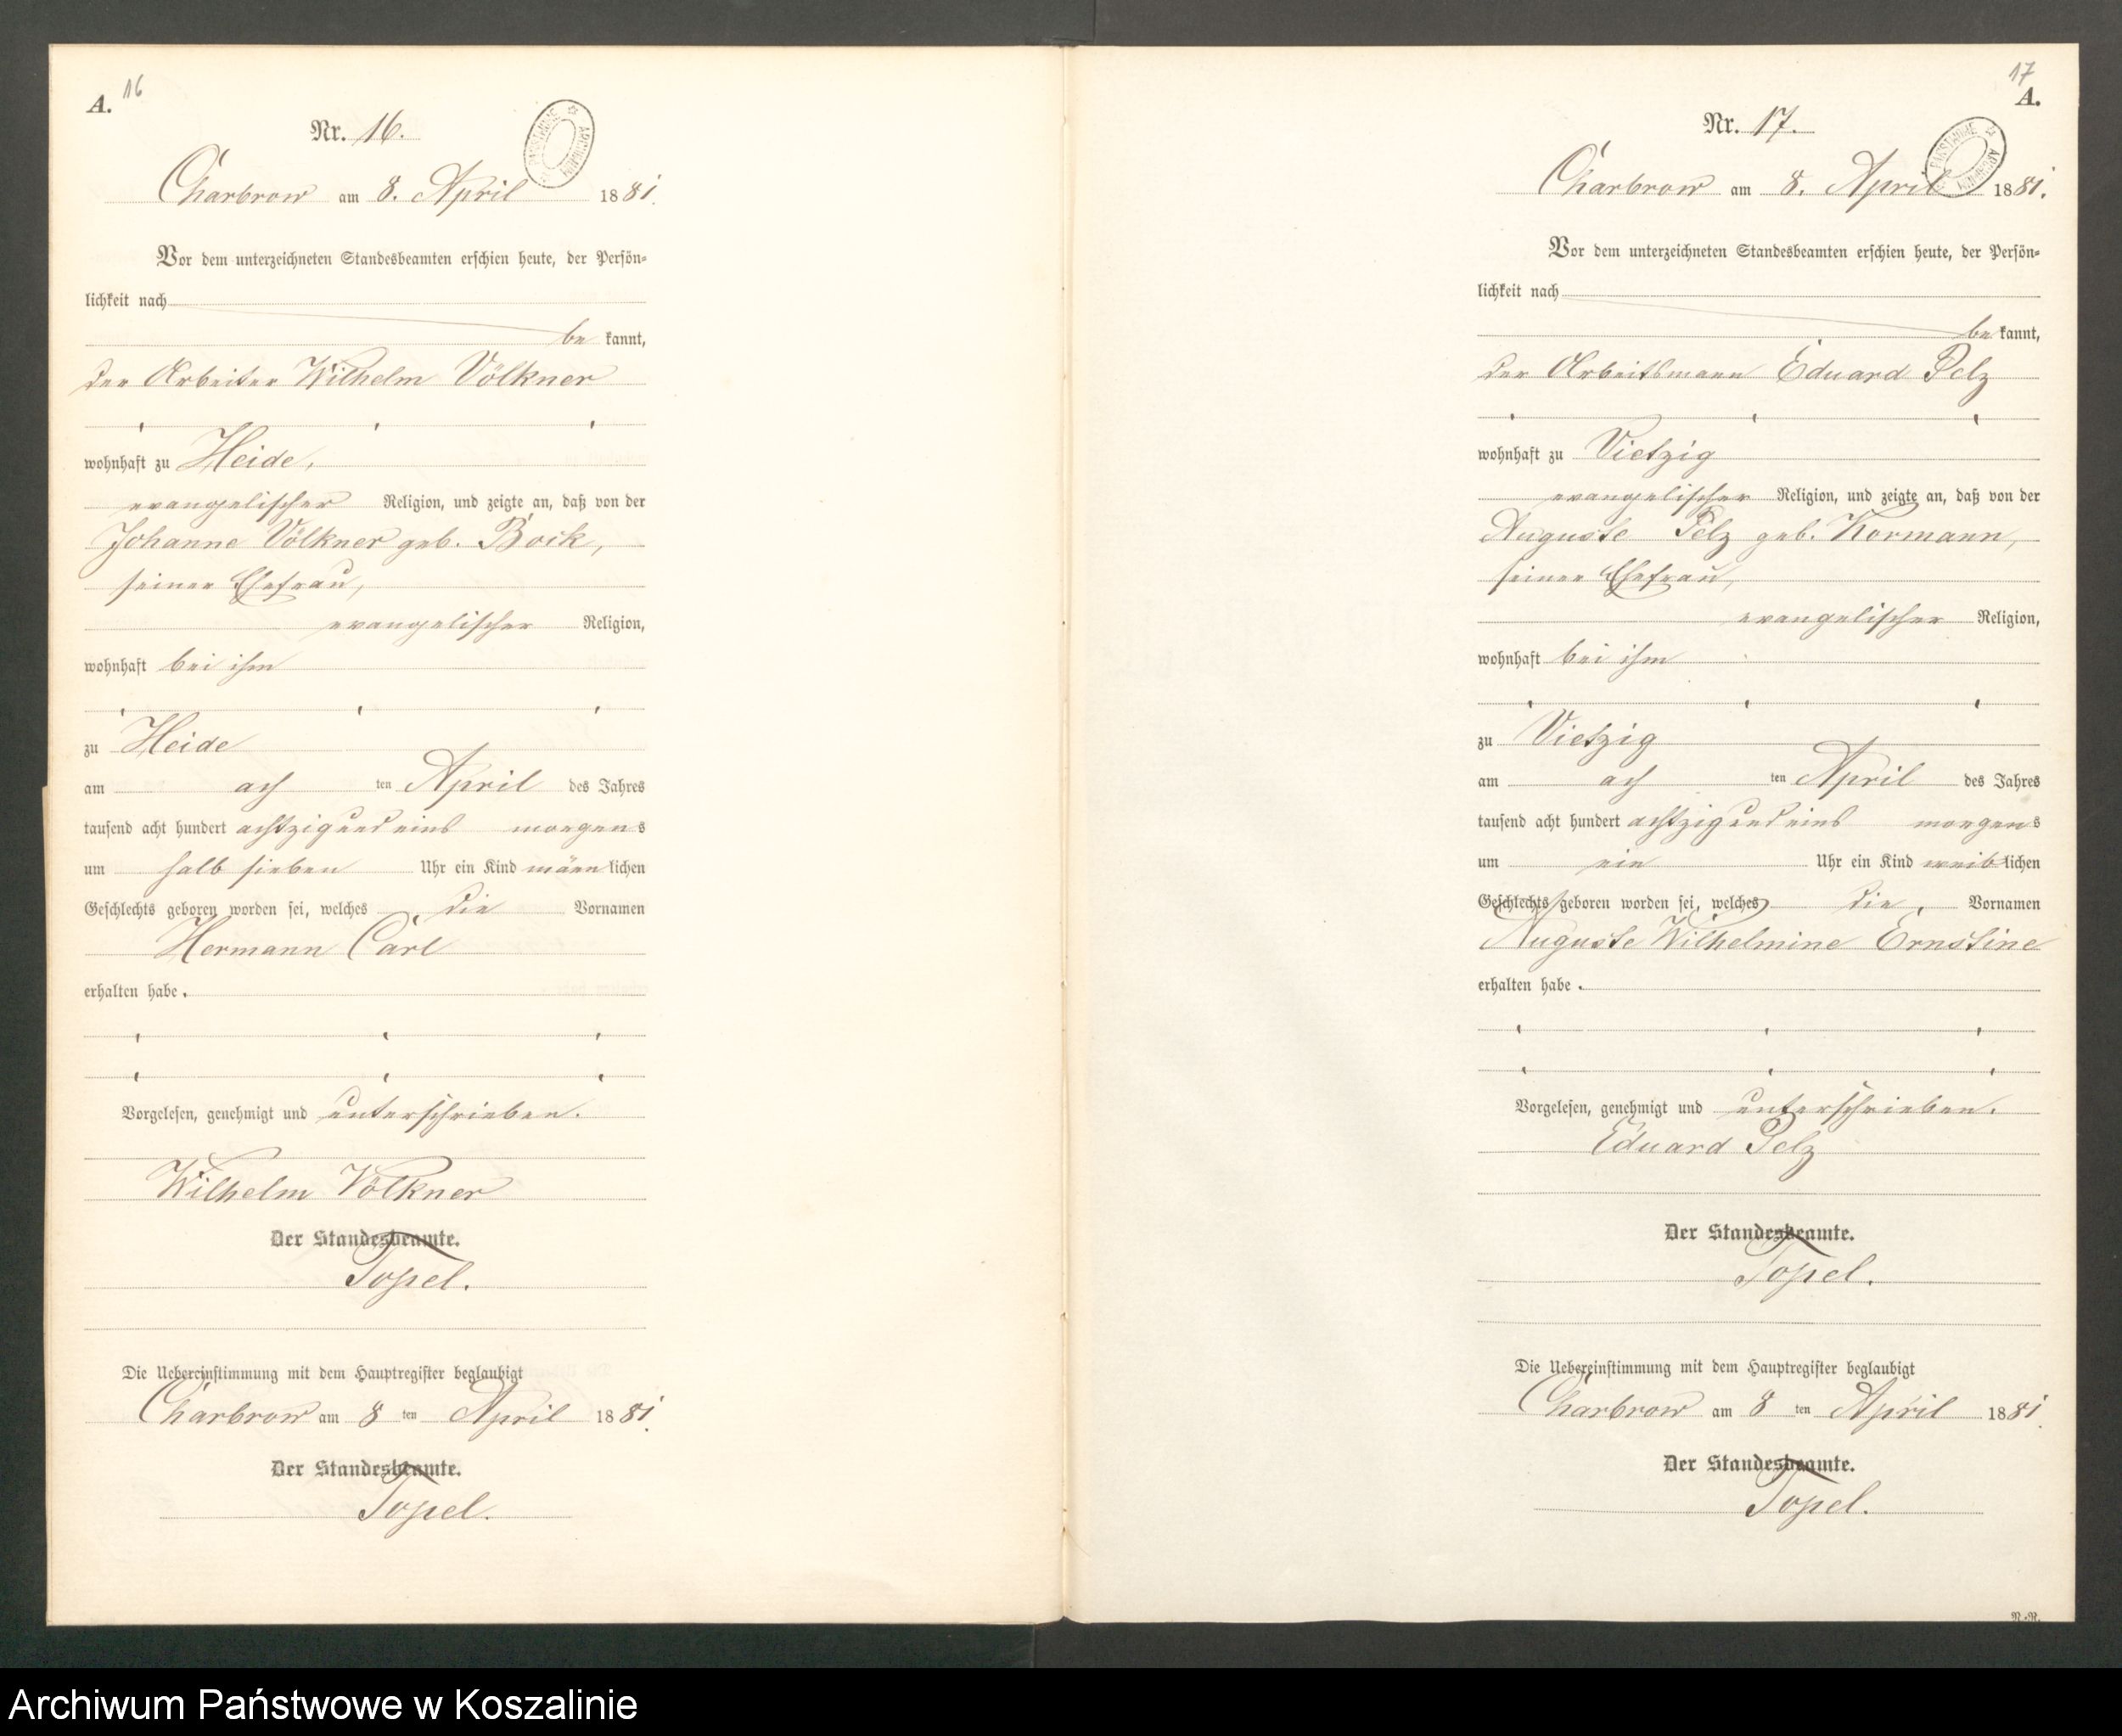 16
A.
Nr. 16.
Charbrow am 8. April 1881.
Vor dem unterzeichneten Standesbeamten erschien heute, der Persön-
lichkeit nach
be kannt,
der Arbeiter Wilhelm Völkner
wohnhaft zu Heide,
evangelischer Religion, und zeigte an, daß von der
Johanne Völkner geb. Bock,
seiner Ehefrau,
evangelischer Religion,
wohnhaft bei ihm
zu Heide
am ach ten April des Jahres
tausend acht hundert achtzig und eins morgens
um halb sieben Uhr ein Kind männlichen
Geschlechts geboren worden sei, welches die Vornamen
Hermann Carl
erhalten habe.
Vorgelesen, genehmigt und unterschrieben.
Wilhelm Völkner
Der Standesbeamte.
Topel.
Die Uebereinstimmung mit dem Hauptregister beglaubigt
Charbrow am 8 ten April 1881.
Der Standesbeamte.
Topel.
17
A.
Nr. 17.
Charbrow am 8. April 1881.
Vor dem unterzeichneten Standesbeamten erschien heute, der Persön-
lichkeit nach
be kannt,
der Arbeitsmann Eduard Pelz
wohnhaft zu Vietzig
evangelischer Religion, und zeigte an, daß von der
Auguste Pelz geb. Kormann,
seiner Ehefrau,
evangelischer Religion,
wohnhaft bei ihm
zu Vietzig
am ach ten April des Jahres
tausend acht hundert achtzig und eins morgens
um ein Uhr ein Kind weiblichen
Geschlechts geboren worden sei, welches die Vornamen
Auguste Wilhelmine Ernstine
erhalten habe.
Vorgelesen, genehmigt und unterschrieben.
Eduard Pelz
Der Standesbeamte.
Topel.
Die Uebereinstimmung mit dem Hauptregister beglaubigt
Charbrow am 8 ten April 1881.
Der Standesbeamte.
Topel.
Archiwum Państwowe w Koszalinie